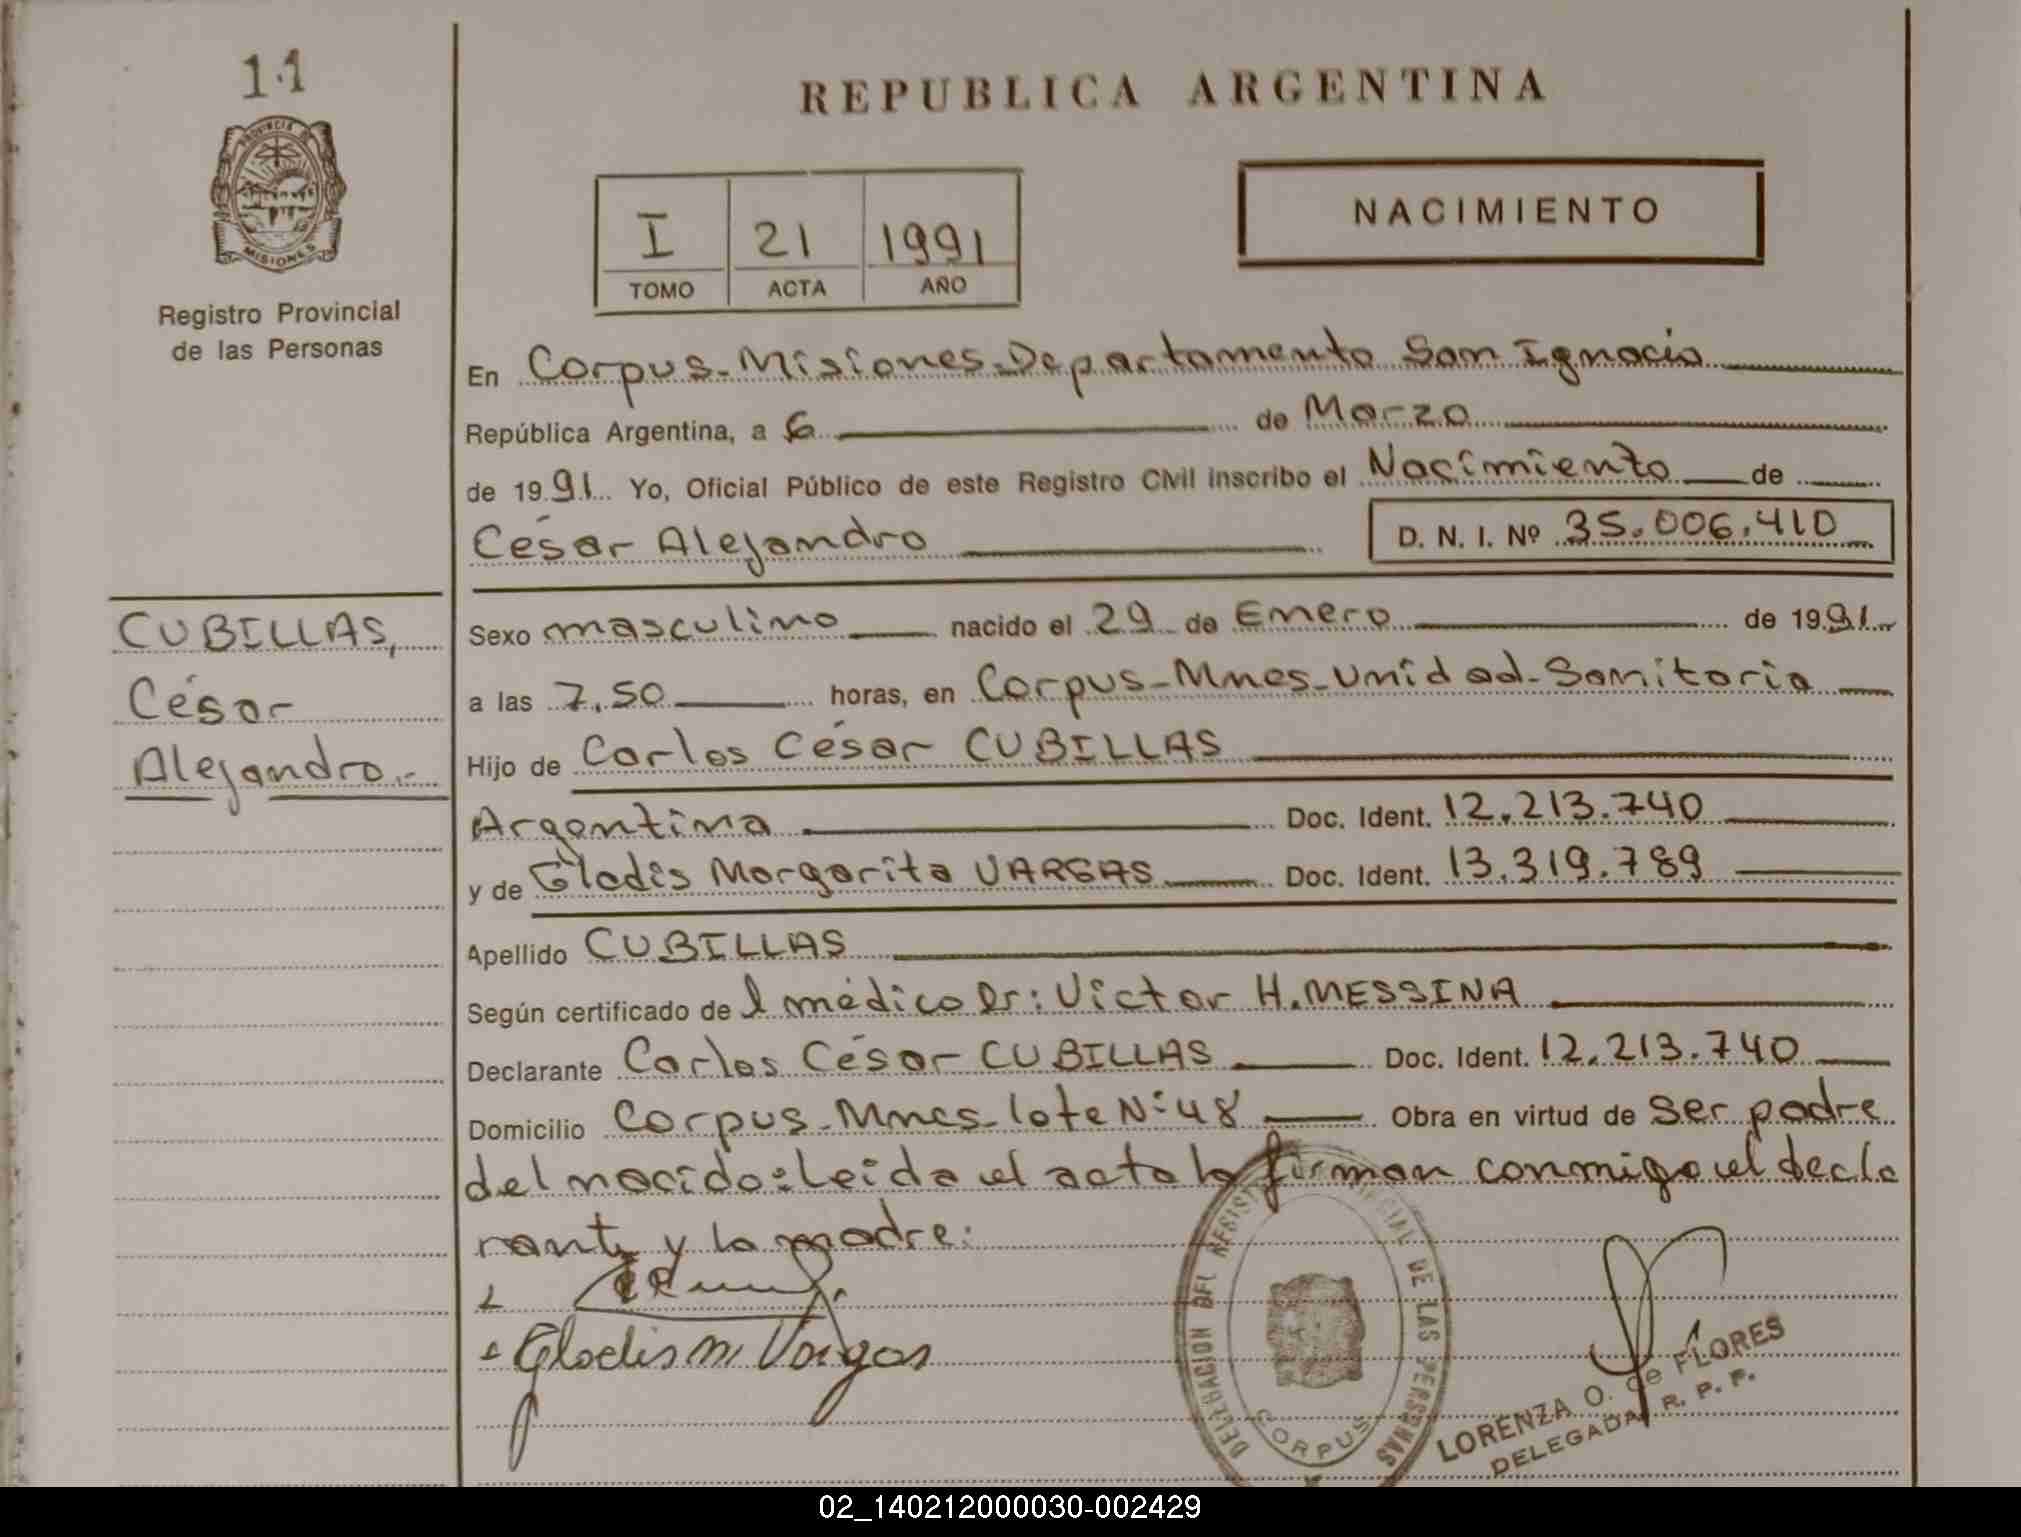 11
PROVINCIA DE
MISIONES
Registro Provincial
de las Personas
CUBILLAS,
César
Alejandro.-
REPUBLICA ARGENTINA
I 21 1991
TOMO ACTA AÑO
NACIMIENTO
En Corpus-Misiones-Departamento San Ignacio
República Argentina, a 6 de Marzo
de 1991 Yo, Oficial Público de este Registro Civil inscribo el Nacimiento de
César Alejandro D. N. I. Nº 35.006.410
Sexo masculino nacido el 29 de Enero de 1991
a las 7,50 horas, en Corpus-Mnes-Unidad-Sanitaria
Hijo de Carlos César CUBILLAS
Argentina Doc. Ident. 12.213.740
y de Gladis Margarita VARGAS Doc. Ident. 13.319.789
Apellido CUBILLAS
Según certificado del médico Dr: Victor H. MESSINA
Declarante Carlos César CUBILLAS Doc. Ident. 12.213.740
Domicilio Corpus-Mnes-lote Nº 48 Obra en virtud de ser padre
del nacido: Leida el acta la firman conmigo el decla
rante y la madre:
Gladis M Vargas
DELEGACION DEL REGISTRO PROVINCIAL DE LAS PERSONAS
CORPUS
LORENZA O. de FLORES
DELEGADA R. P. P.
02_140212000030-002429